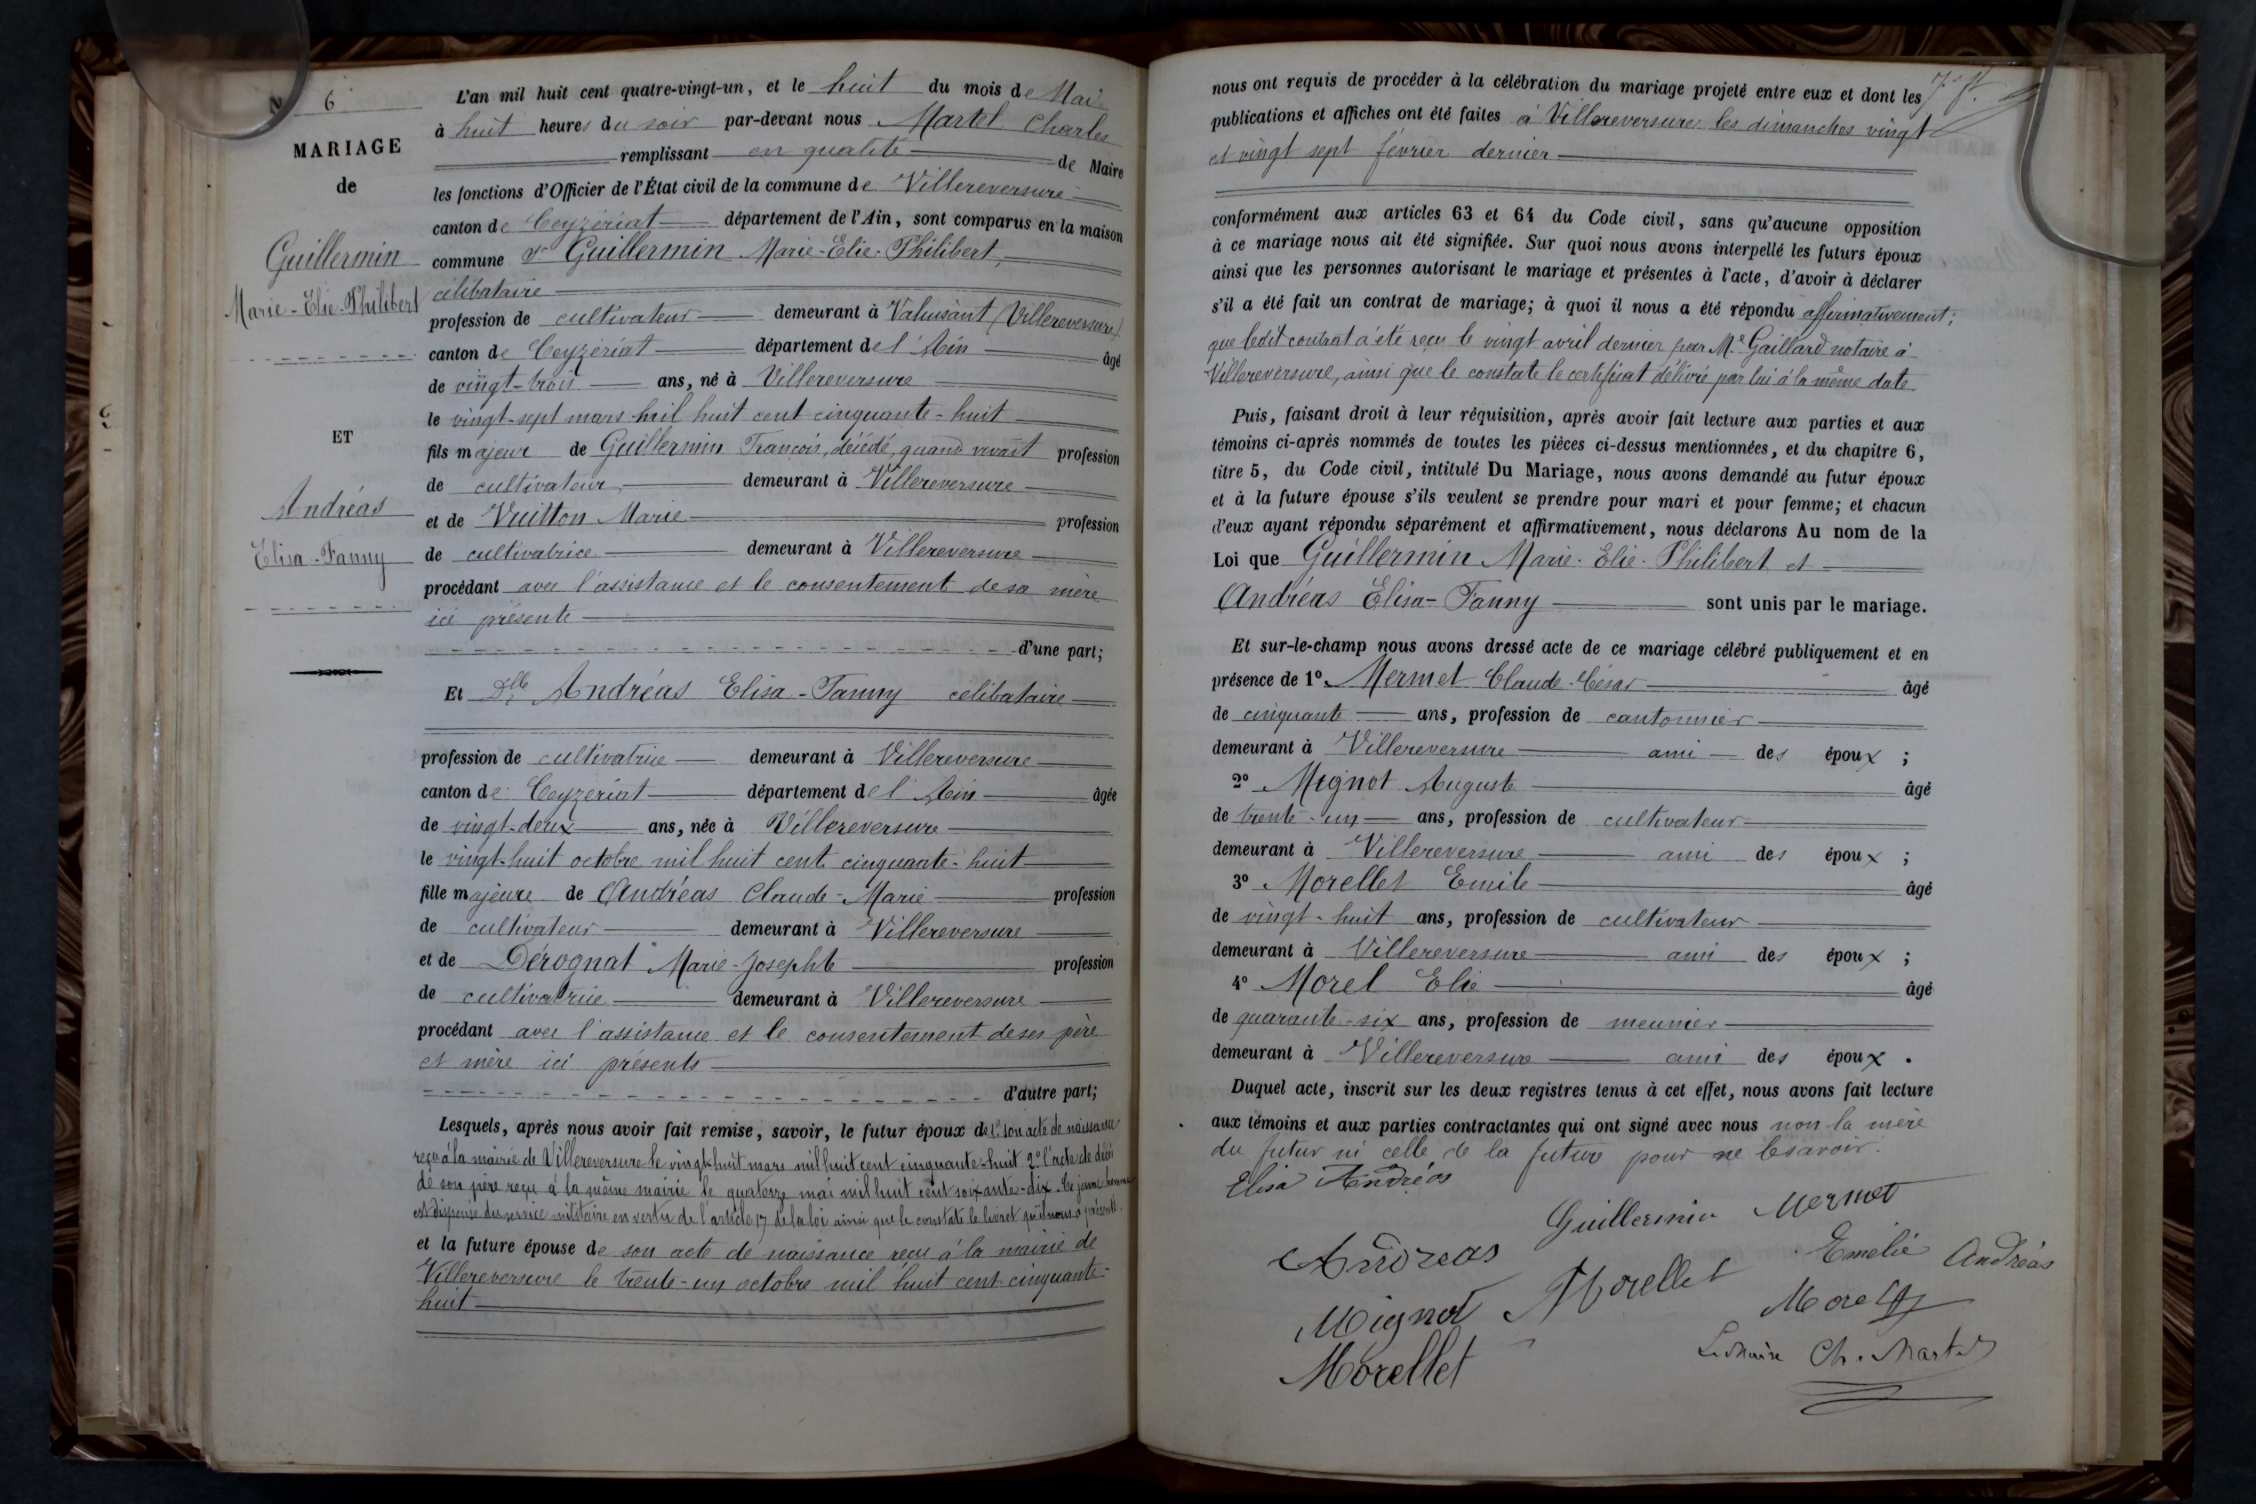 N 6
MARIAGE
de
Guillermin
Marie-Elie-Philibert
ET
Andréas
Elisa-Fanny
L'an mil huit cent quatre-vingt-un, et le huit du mois de Mai
à huit heures du soir par-devant nous Martel Charles
remplissant en qualité de Maire
les fonctions d'Officier de l'État civil de la commune de Villereversure
canton de Ceyzériat département de l'Ain, sont comparus en la maison
commune Sr Guillermin Marie-Elie-Philibert,
célibataire
profession de cultivateur demeurant à Valuisant (Villereversure)
canton de Ceyzériat département de l'Ain âgé
de vingt-trois ans, né à Villereversure
le vingt-sept mars mil huit cent cinquante-huit
fils majeur de Guillermin François, décédé, quand vivait profession
de cultivateur, demeurant à Villereversure
et de Vuitton Marie profession
de cultivatrice demeurant à Villereversure
procédant avec l'assistance et le consentement de sa mère
ici présente
d'une part;
Et Dlle Andréas Elisa-Fanny célibataire
profession de cultivatrice demeurant à Villereversure
canton de Ceyzériat département de l'Ain âgée
de vingt-deux ans, née à Villereversure
le vingt-huit octobre mil huit cent cinquante-huit
fille majeure de Andréas Claude-Marie profession
de cultivateur demeurant à Villereversure
et de Dérognat Marie-Josephte profession
de cultivatrice demeurant à Villereversure
procédant avec l'assistance et le consentement de ses père
et mère ici présents
d'autre part;
Lesquels, après nous avoir fait remise, savoir, le futur époux de 1º son acte de naissance
reçu à la mairie de Villereversure le vingt-huit mars mil huit cent cinquante-huit 2º l'acte de décès
de son père reçu à la même mairie le quatorze mai mil huit cent soixante-dix. Le jeune homme
est dispensé du service militaire en vertu de l'article 17 de la loi ainsi que le constate le livret qu'il nous a présenté.
et la future épouse de son acte de naissance reçu à la mairie de
Villereversure le trente-un octobre mil huit cent cinquante-
huit
nous ont requis de procéder à la célébration du mariage projeté entre eux et dont les
publications et affiches ont été faites à Villereversure les dimanches vingt
et vingt sept février dernier
conformément aux articles 63 et 64 du Code civil, sans qu'aucune opposition
à ce mariage nous ait été signifiée. Sur quoi nous avons interpellé les futurs époux
ainsi que les personnes autorisant le mariage et présentes à l'acte, d'avoir à déclarer
s'il a été fait un contrat de mariage; à quoi il nous a été répondu affirmativement;
que ledit contrat a été reçu le vingt avril dernier par Me Gaillard notaire à
Villereversure, ainsi que le constate le certificat délivré par lui à la même date
Puis, faisant droit à leur réquisition, après avoir fait lecture aux parties et aux
témoins ci-après nommés de toutes les pièces ci-dessus mentionnées, et du chapitre 6,
titre 5, du Code civil, intitulé Du Mariage, nous avons demandé au futur époux
et à la future épouse s'ils veulent se prendre pour mari et pour femme; et chacun
d'eux ayant répondu séparément et affirmativement, nous déclarons Au nom de la
Loi que Guillermin Marie-Elie-Philibert et
Andréas Elisa-Fanny sont unis par le mariage.
Et sur-le-champ nous avons dressé acte de ce mariage célébré publiquement et en
présence de 1º Mermet Claude-César âgé
de cinquante ans, profession de cantonnier
demeurant à Villereversure ami des époux ;
2º Mignot Auguste âgé
de trente-un ans, profession de cultivateur
demeurant à Villereversure ami des époux ;
3º Morellet Emile âgé
de vingt-huit ans, profession de cultivateur
demeurant à Villereversure ami des époux ;
4º Morel Elie âgé
de quarante-six ans, profession de meunier
demeurant à Villereversure ami des époux .
Duquel acte, inscrit sur les deux registres tenus à cet effet, nous avons fait lecture
aux témoins et aux parties contractantes qui ont signé avec nous non la mère
du futur ni celle de la future pour ne le savoir.
Elisa Andréas
Guillermin Mermet
Andreas Emelie Andréas
Mignot Morellet Morel
Morellet Le Maire Ch. Martel